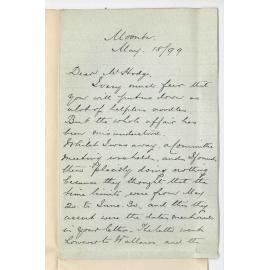 Moonta.
May. 18/99
Dear Mr Hodge.
I very much fear that
you will put us down as
a lot of helpless noodles.
But the whole affair has
been misunderstood.
Whilst I was away, a Committee
meeting was held, and I found
them placidly doing nothing
because they thought that the
time limits were from May
20 to June 30, and this they
assert were the dates mentioned
in your letter. The letter went
to Wallaroo and the